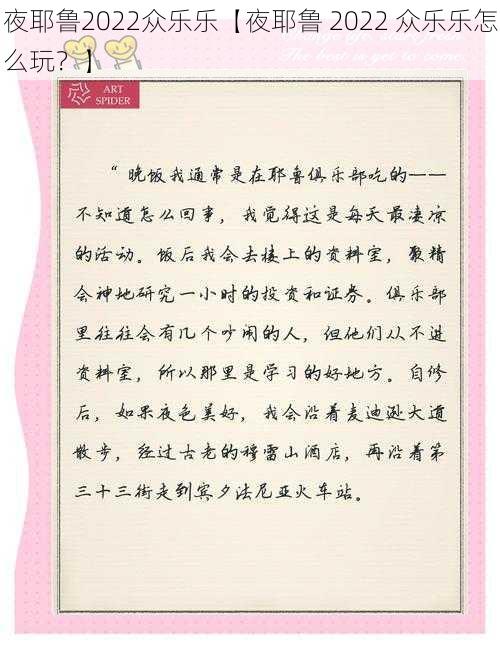 夜耶鲁2022众乐乐【夜耶鲁 2022 众乐乐怎
么玩？】
The best is yet to come.
ART
SPIDER
“晚饭我通常是在耶鲁俱乐部吃的——
不知道怎么回事，我觉得这是每天最凄凉
的活动。饭后我会去楼上的资料室，聚精
会神地研究一小时的投资和证券。俱乐部
里往往会有几个吵闹的人，但他们从不进
资料室，所以那里是学习的好地方。自修
后，如果夜色美好，我会沿着麦迪逊大道
散步，经过古老的穆雷山酒店，再沿着第
三十三街走到宾夕法尼亚火车站。